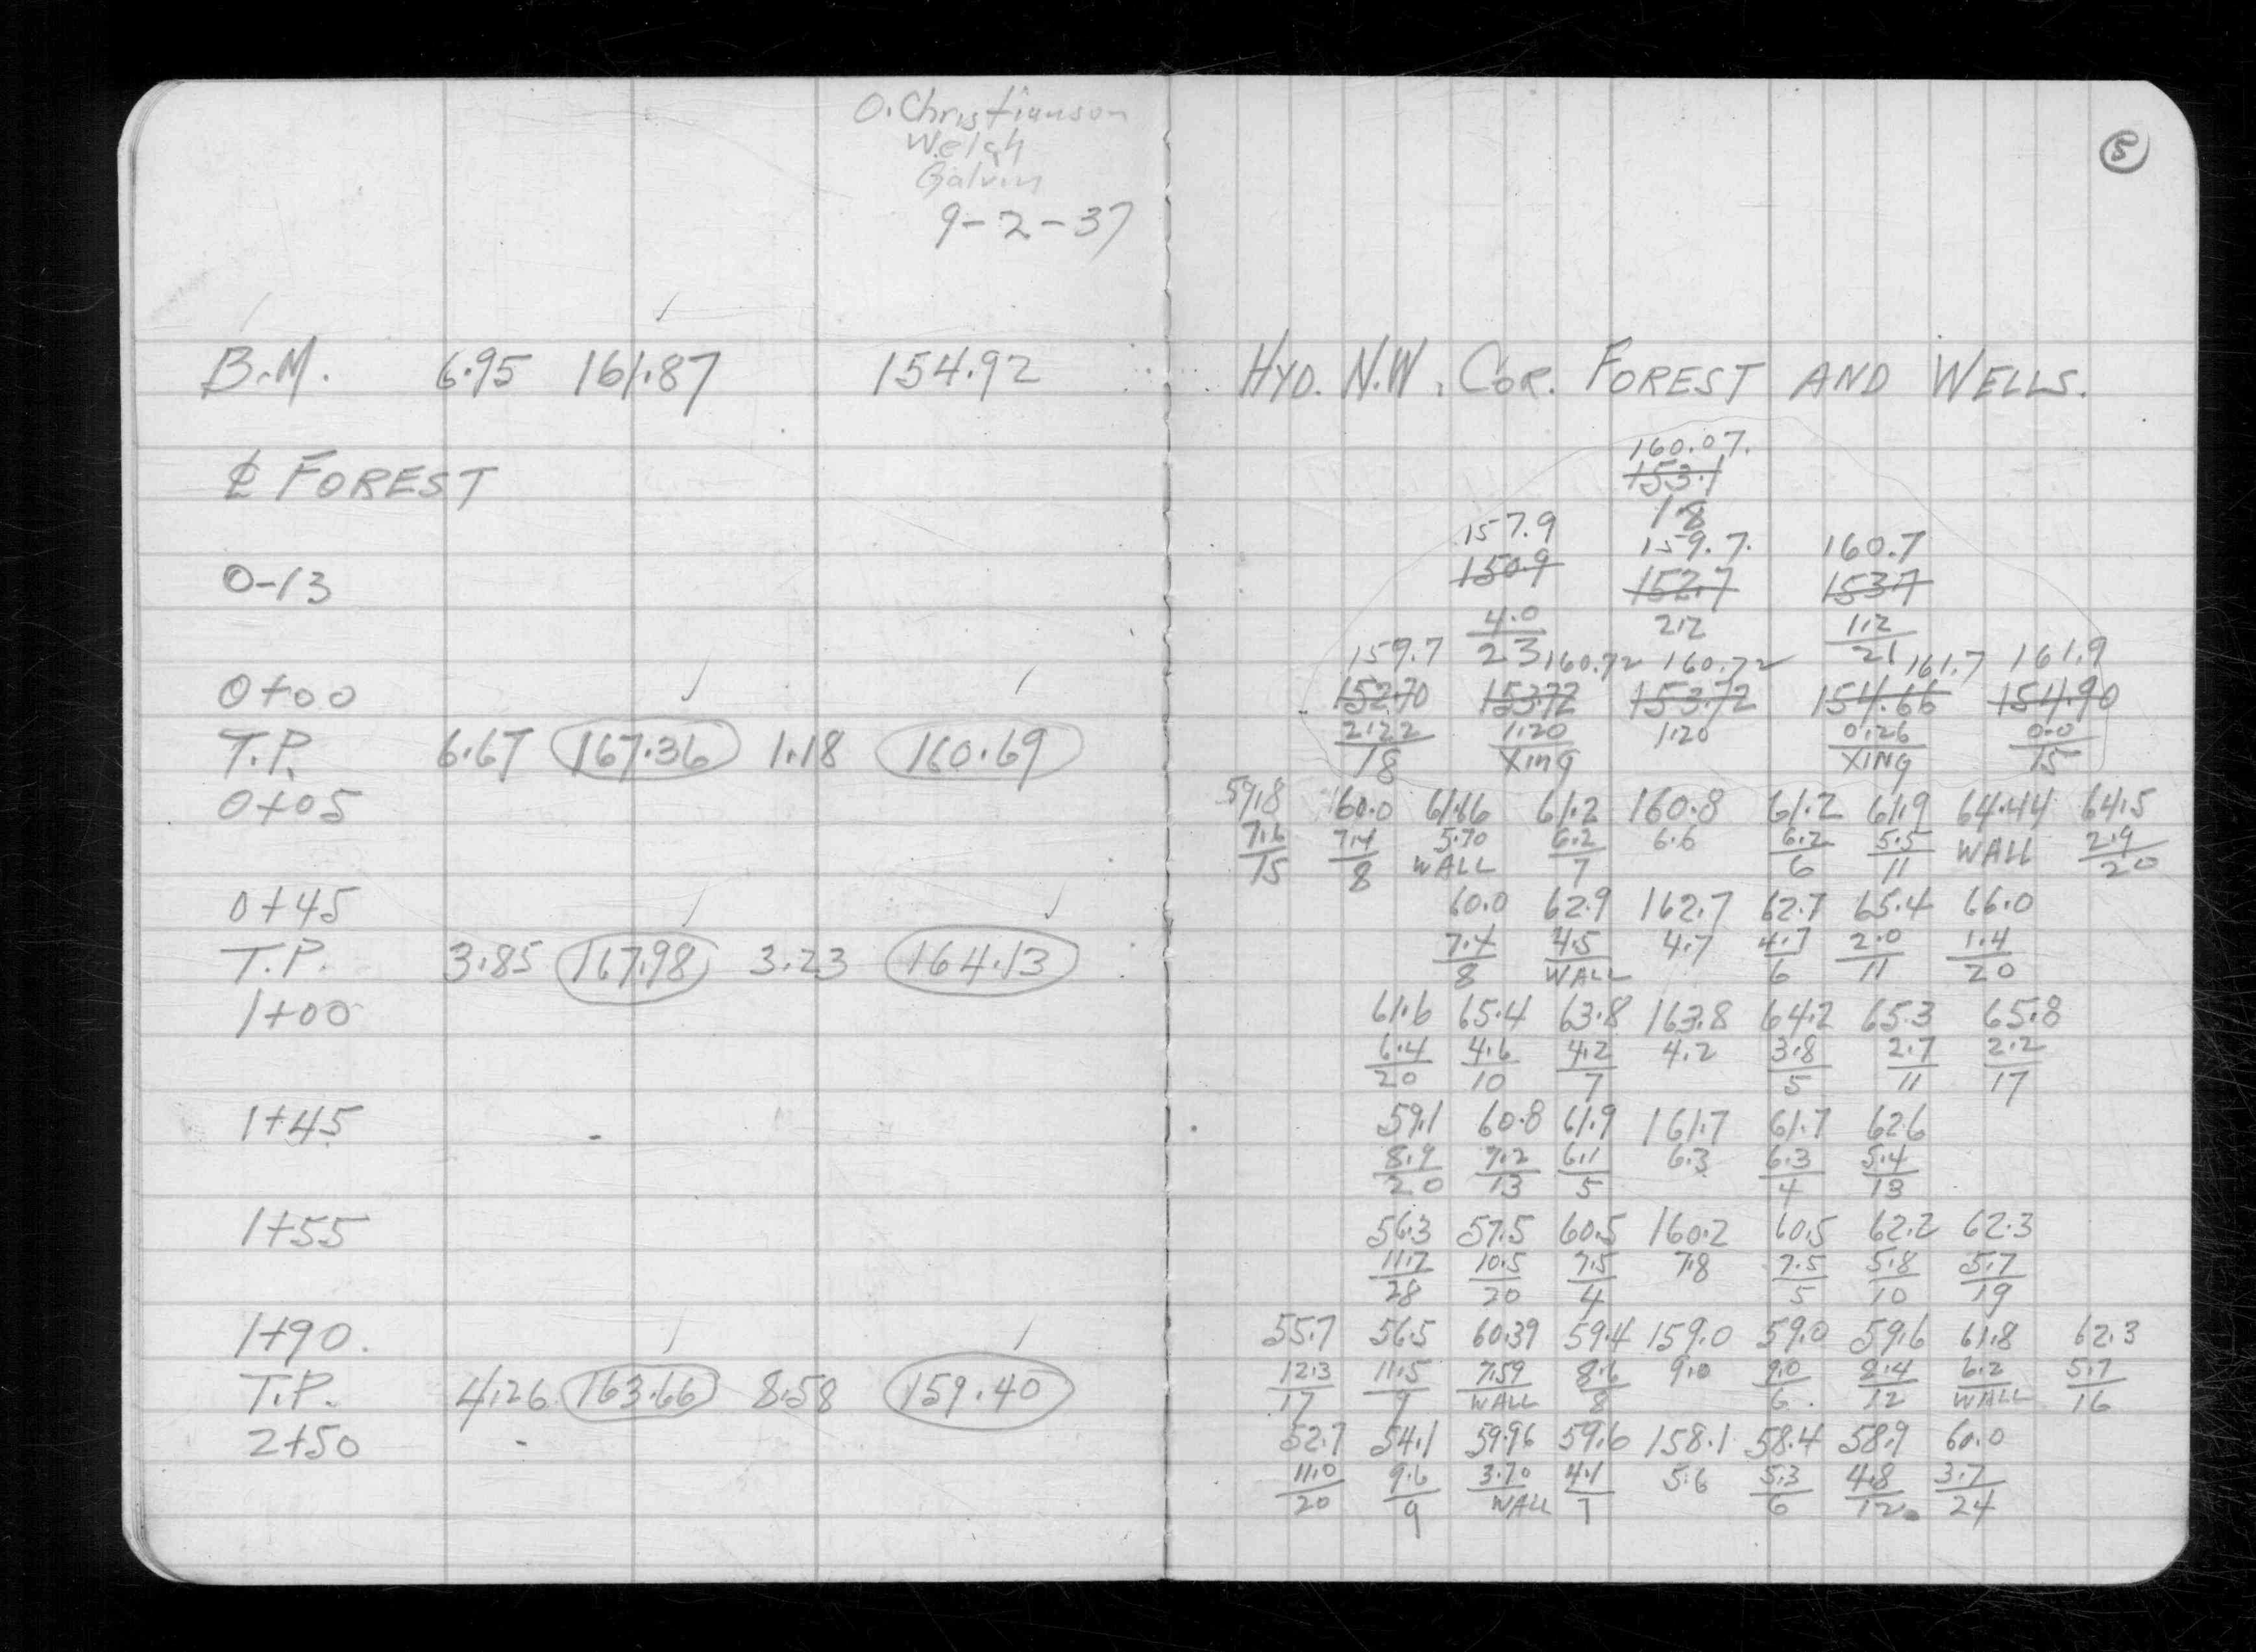 O. Christianson
Welch
Galvin
9-2-37
5
B.M. 6.95 161.87 154.92 HYD. N.W. COR. FOREST AND WELLS.
160.07.
℄ FOREST 153.1
1.8
157.9 159.7. 160.7
0-13 150.9 152.7 153.7
4.0 2.2 1.2
23 21
159.7 160.72 160.72 161.7 161.9
0+00 152.70 153.72 153.72 154.66 154.90
2.22 1.20 1.20 0.26 0.0
18 XING XING 15
T.P. 6.67 167.36 1.18 160.69
0+05 59.8 160.0 61.66 61.2 160.8 61.2 61.9 64.44 64.5
7.6 7.4 5.70 6.2 6.6 6.2 5.5 WALL 2.9
15 8 WALL 7 6 11 20
0+45 60.0 62.9 162.7 62.7 65.4 66.0
7.4 4.5 4.7 4.7 2.0 1.4
8 WALL 6 11 20
T.P. 3.85 167.98 3.23 164.13
1+00 61.6 65.4 63.8 163.8 64.2 65.3 65.8
6.4 4.6 4.2 4.2 3.8 2.7 2.2
20 10 7 5 11 17
1+45 59.1 60.8 61.9 161.7 61.7 62.6
8.9 7.2 6.1 6.3 6.3 5.4
20 13 5 4 13
1+55 56.3 57.5 60.5 160.2 60.5 62.2 62.3
11.7 10.5 7.5 7.8 7.5 5.8 5.7
28 20 4 5 10 19
1+90. 55.7 56.5 60.39 59.4 159.0 59.0 59.6 61.8 62.3
12.3 11.5 7.59 8.6 9.0 9.0 8.4 6.2 5.7
17 9 WALL 8 6 12 WALL 16
T.P. 4.26 163.66 8.58 159.40
2+50 52.7 54.1 59.96 59.6 158.1 58.4 58.9 60.0
11.0 9.6 3.70 4.1 5.6 5.3 4.8 3.7
20 9 WALL 7 6 12 24